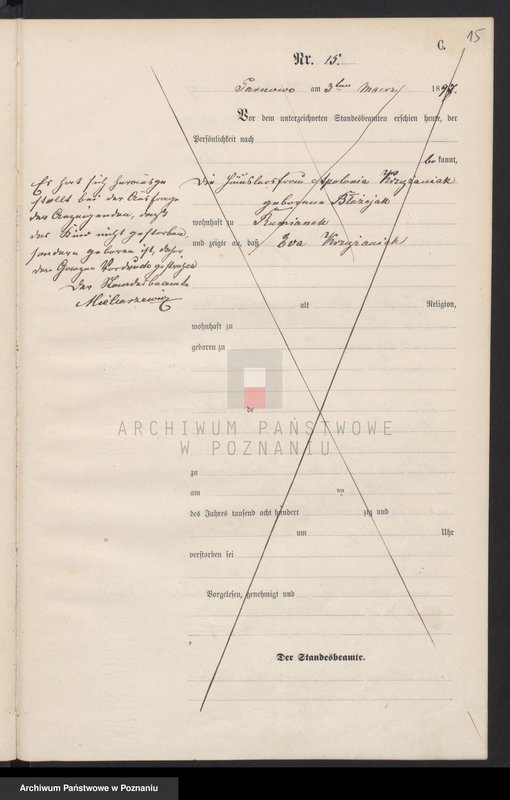 15
C.
Nr. 15.
Tarnowo am 3ten Maerz 1897.
Vor dem unterzeichneten Standesbeamten erschien heute, der
Persönlichkeit nach
bekannt,
Die Häuslersfrau Apolonia Krzyżaniak
geborene Błażejak
wohnhaft zu Rumianek
und zeigte an, daß Eva Krzyżaniak
Es hat sich herausge
stellt bei der Ausfrage
der Anzeigenden, daß
das Kind nicht gestorben
sondern geboren ist, daher
den Ganzen Vordruck gestrichen
Der Standesbeamte
alt Religion,
wohnhaft zu
geboren zu
de
ARCHIWUM PAŃSTWOWE
W POZNANIU
zu
am ten
des Jahres tausend acht hundert zig und
um Uhr
verstorben sei
Vorgelesen, genehmigt und
Der Standesbeamte.
Archiwum Państwowe w Poznaniu